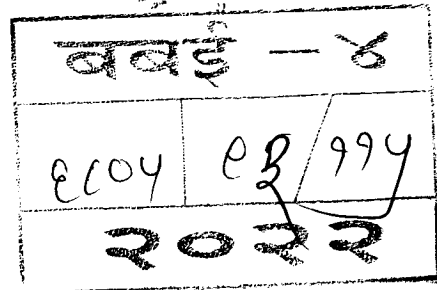 बबई - ४
६८०५ ९३/११५
२०२२